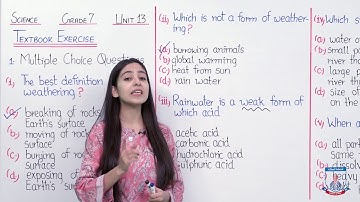 SCIENCE GRADE 7 UNIT 13
TEXTBOOK EXERCISE
1. Multiple Choice Questions
(i) The best definition
weathering?
(a) breaking of rocks
Earth's surface
(b) moving of rock
surface
(c) burying of rock
surface
(d) exposing of
Earth's surf
(ii) Which is not a form of weather-
ing?
(a) burrowing animals
(b) global warming
(c) heat from sun
(d) rain water
(iii) Rainwater is a weak form of
which acid
acetic acid
carbonic acid
hydrochloric acid
sulphuric acid
(iv) Which s
(a) water o
(b) small p
river tha
(c) large p
river th
(d) size of
on the
(v) When a
(a) all part
same
(b) dissol
(c) heavy